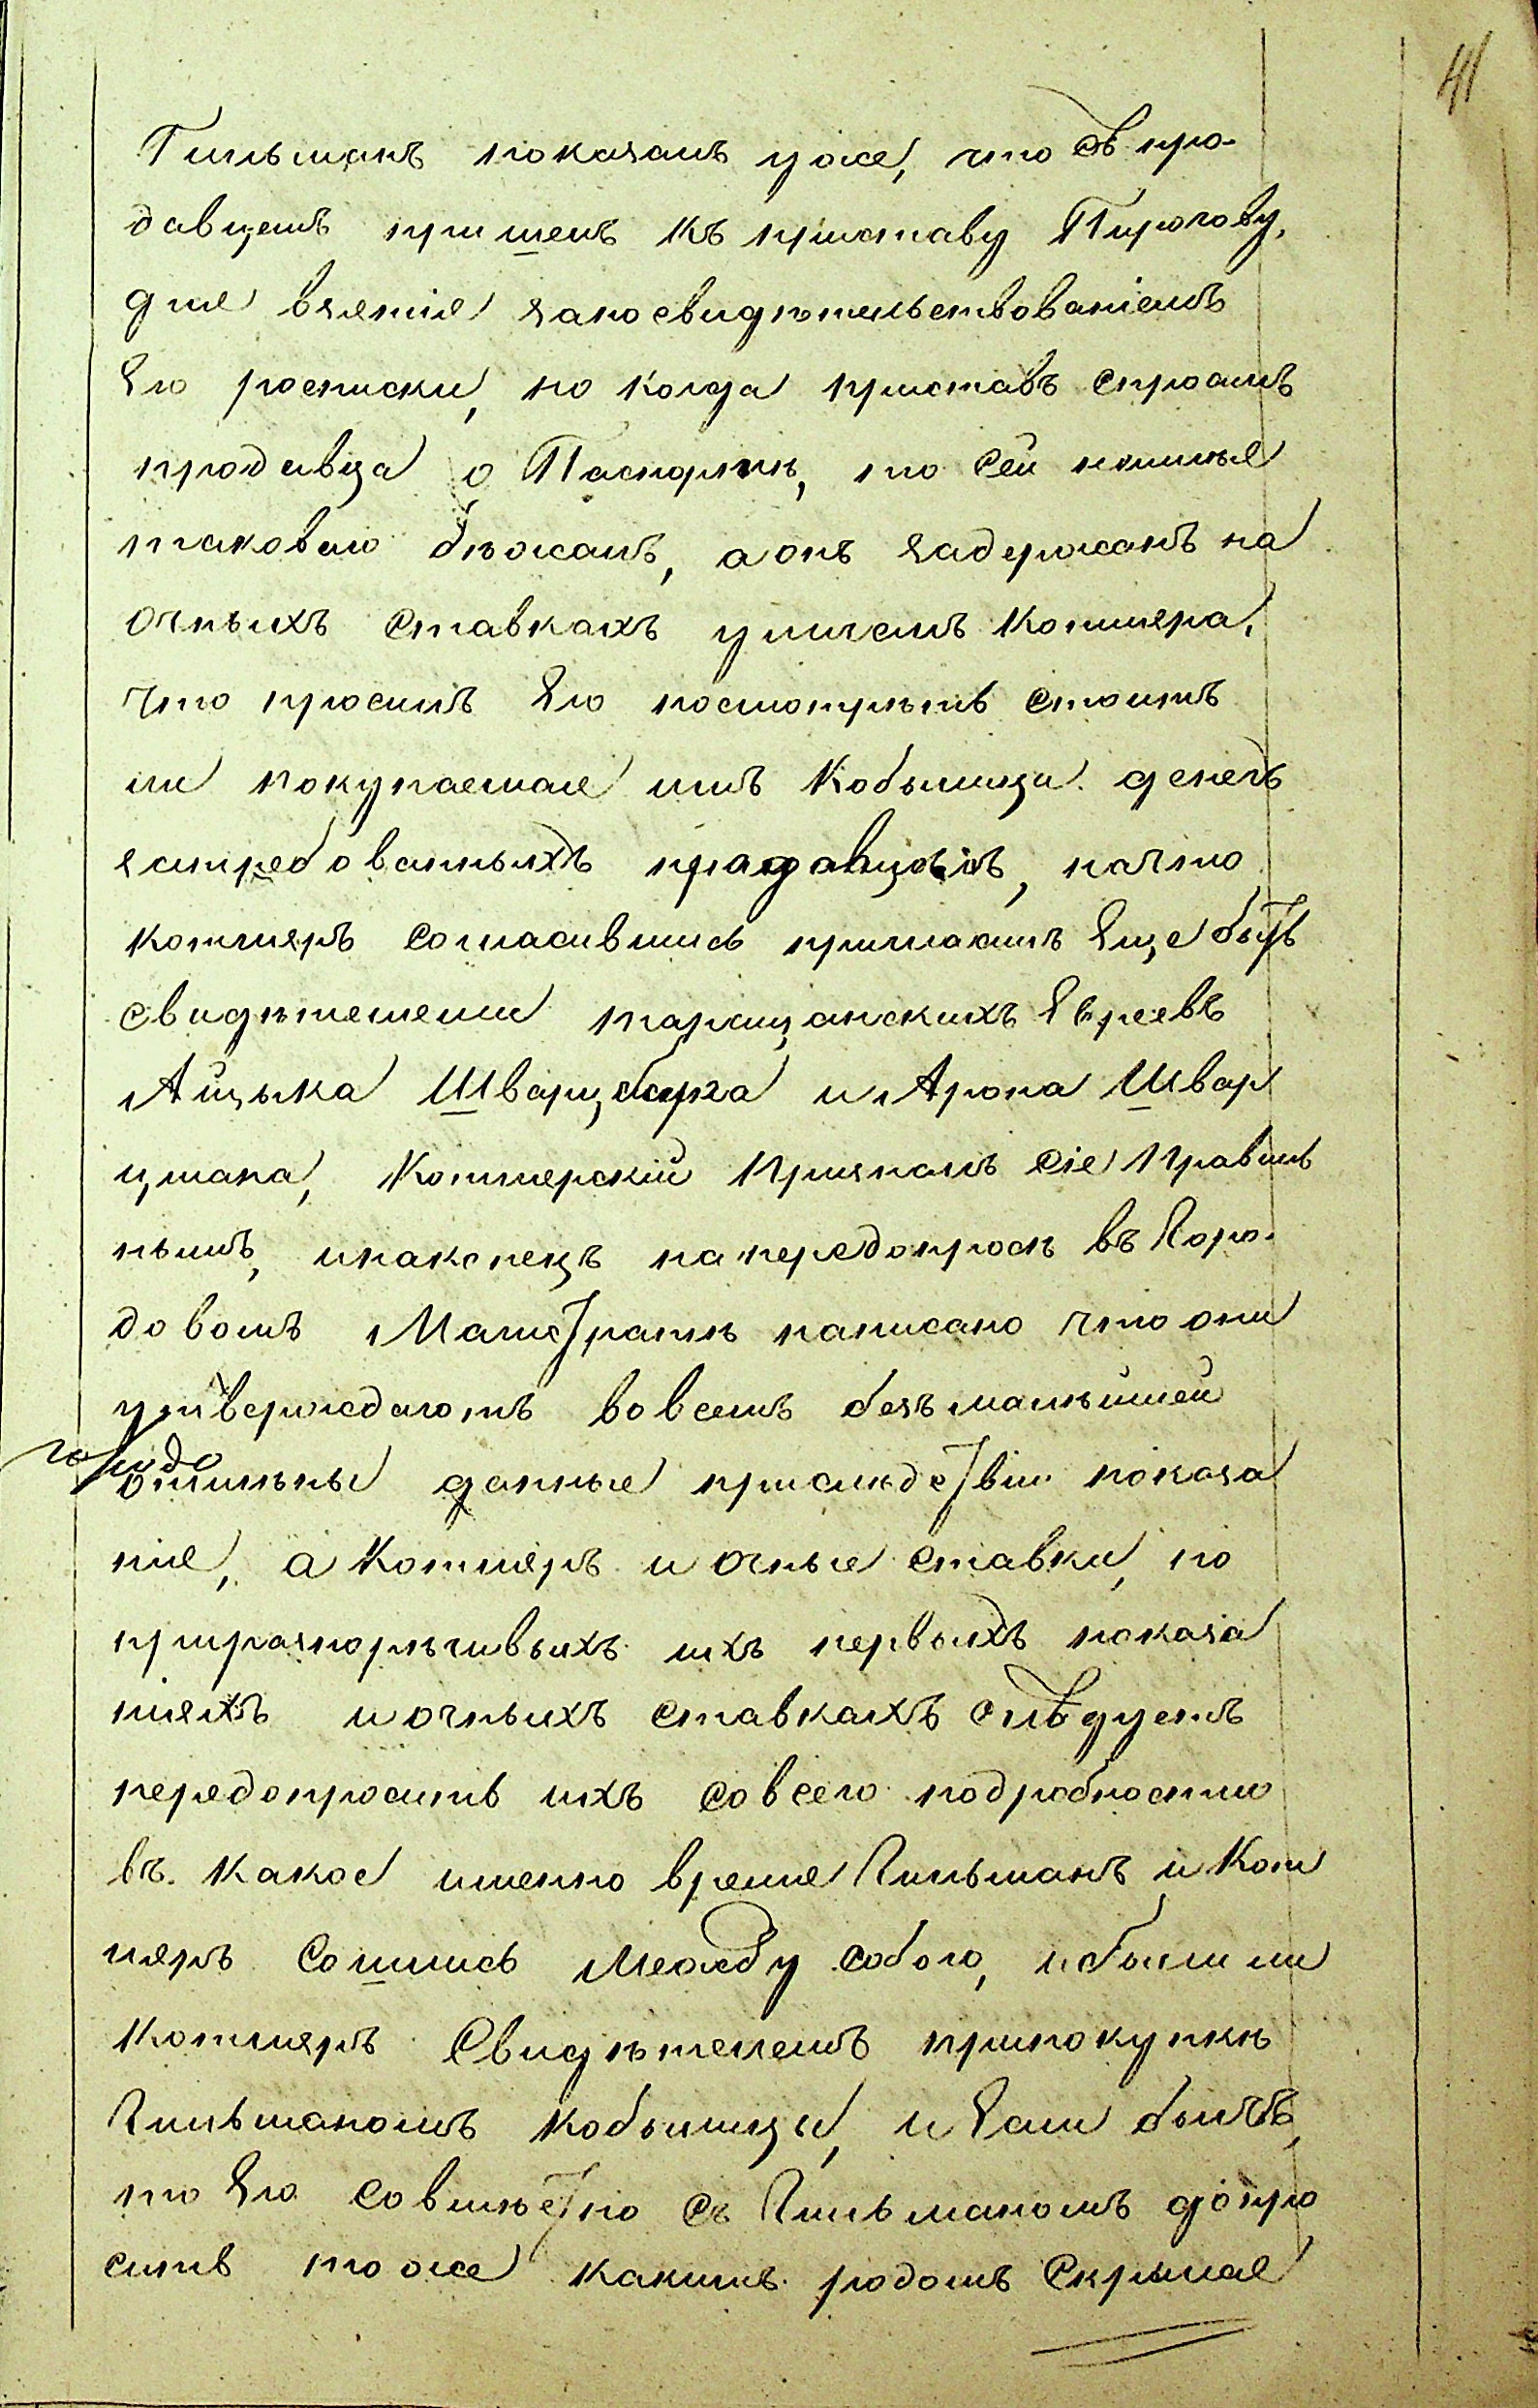 41
Гильманъ показалъ уже, что съ про-
давцемъ пришелъ къ приставу Пирогову,
для взятія засвидѣтельствованіемъ
Его росписки, но когда приставъ спросилъ
продавца о Паспортѣ, то сей неимѣя
таковаго бѣжалъ, а онъ задержанъ на
очныхъ ставкахъ уличалъ Котляра,
что просилъ Его посмотрѣть стоитъ
ли покупаемая имъ Кобылица денегъ
затребованныхъ продавцомъ, начто
котляръ согласившись пригласилъ Еще быть
свидѣтелями таращанскихъ Евреевъ
Айцыка Шварцбурга и Арона Швар
цмана, Котлярскій призналъ сіе Правиль
нымъ, инаконецъ напередопросѣ въ Горо-
довомъ Магистратѣ написано что они
утверждаютъ вовсемъ безъ малѣйшей
данные прислѣдствіи показа
ніе, а Котляръ и очные ставки, по
притразнорѣчивыхъ ихъ первыхъ показа
ніяхъ иочныхъ ставкахъ слѣдуетъ
передопросить ихъ совсего подробностію
въ какое именно время Гильманъ и Кот
ляръ сошлись между собою, ибылъ ли
котляръ Свидѣтелемъ припокупкѣ
Гильманомъ кобылицы, и Если былъ,
то Его совмѣстно съ Гильманомъ допро
сить тоже какимъ родомъ скрылся